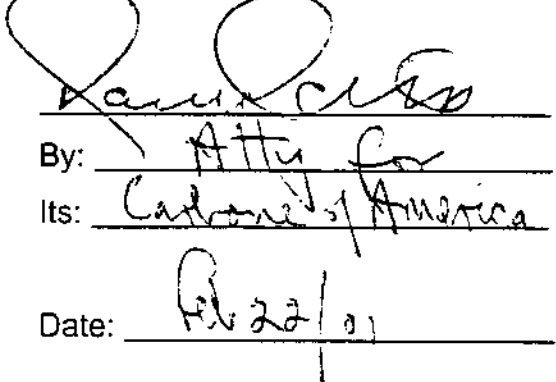 By: Atty for
Its: Carbone of America
Date: Feb 22/01